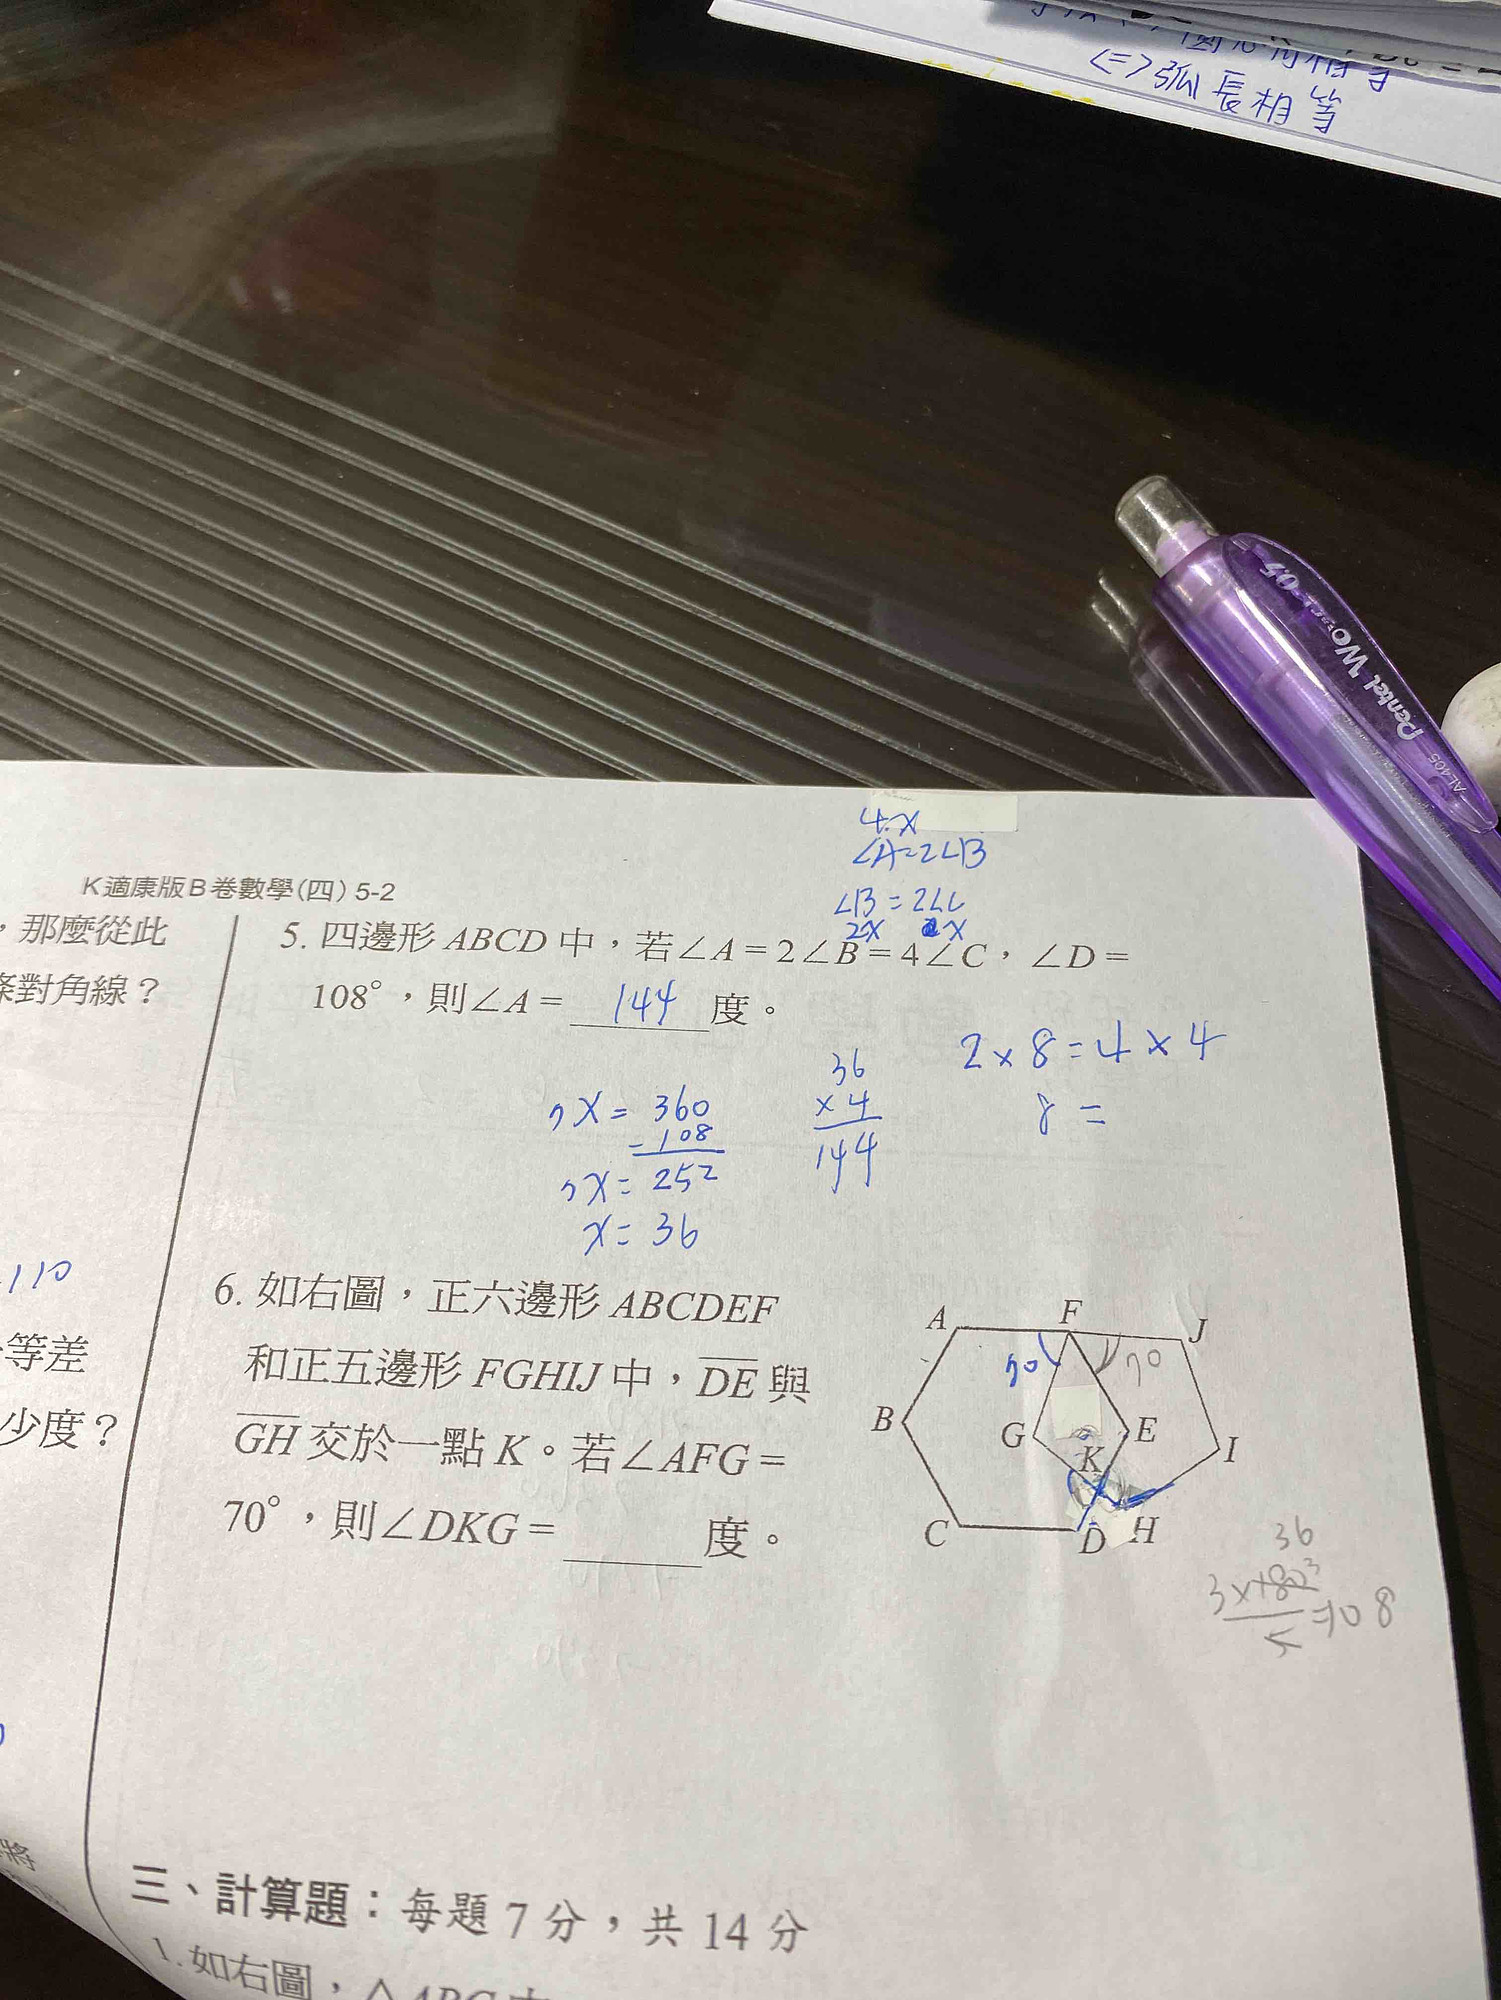 ⟨三⟩弧長相等
Pentel
AL405
K適康版B卷數學(四) 5-2
，那麼從此
條對角線？
110
等差
少度？
將
4x
∠A=2∠B
∠B=2∠C
2x x
5. 四邊形ABCD中，若∠A=2∠B=4∠C，∠D=
108°，則∠A= 144 度。
7x = 360
-108
7x = 252
x = 36
36
×4
144
2×8=4×4
8=
6. 如右圖，正六邊形ABCDEF
和正五邊形FGHIJ中，DE與
GH交於一點K。若∠AFG=
70°，則∠DKG= 度。
A F J
70 70
B G K E I
C D H
36
=108
5
三、計算題：每題7分，共14分
1. 如右圖，△ABC中